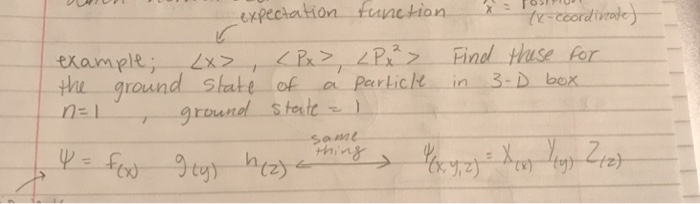 expectation function x̂ = position
(x-coordinate)
example; <x> , <Px>, <Px²> Find these for
the ground state of a particle in 3-D box
n=1 , ground state = 1
same
thing
Ψ = f(x) g(y) h(z) ⟷ Ψ(x,y,z) = X(x) Y(y) Z(z)